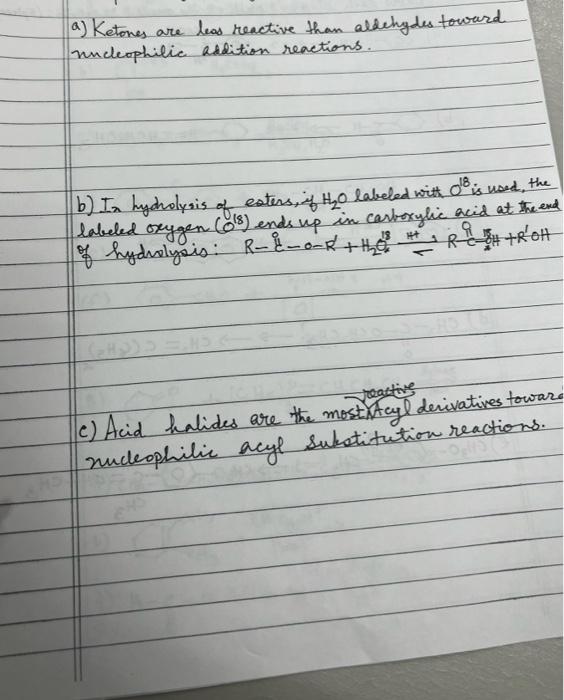 a) Ketones are less reactive than aldehydes toward
nucleophilic addition reactions.
b) In hydrolysis of esters, if H₂O labeled with O¹⁸ is used, the
labeled oxygen (O¹⁸) ends up in carboxylic acid at the end
of hydrolysis: R-C(=O)-O-R' + H₂O¹⁸ H+ ⇌ R-C(=O)-O¹⁸H + R'OH
c) Acid halides are the most reactive Acyl derivatives toward
nucleophilic acyl substitution reactions.